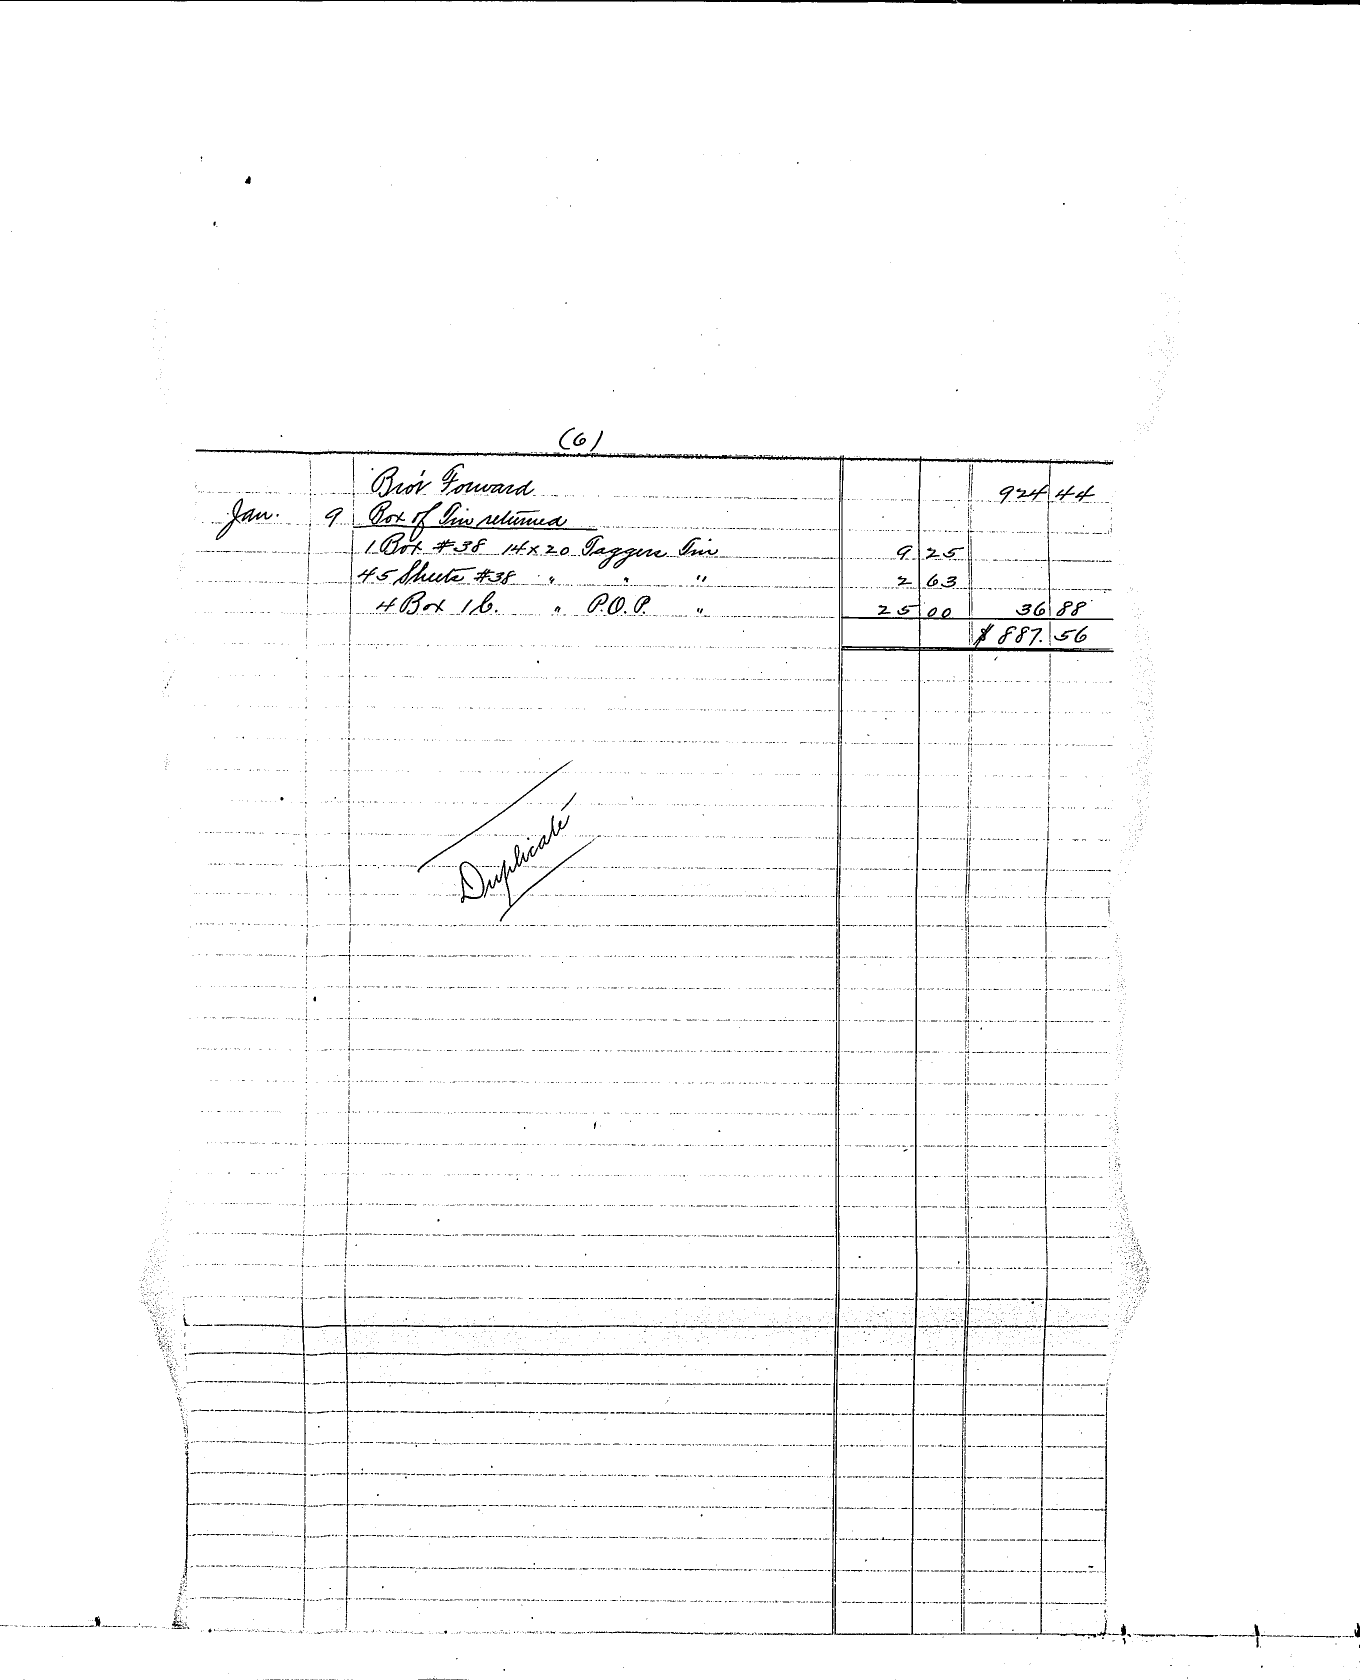 (6)
Bro't Forward 924 44
Jan. 9 Box of Tin returned
1 Box #38 14x20 Taggers Tin 9 25
45 Sheets #38 " " " 2 63
4 Box 1C. " P.O.P. " 25 00 36 88
$887.56
Duplicate